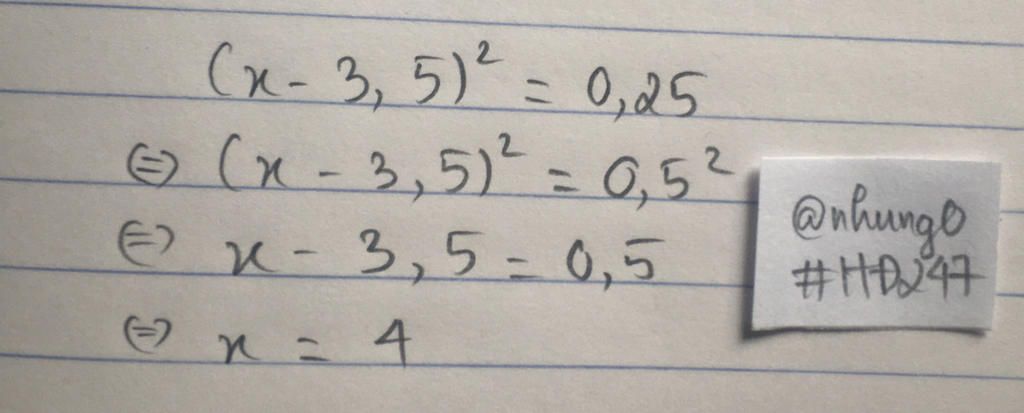 (x - 3,5)² = 0,25
⇔ (x - 3,5)² = 0,5²
⇔ x - 3,5 = 0,5
⇔ x = 4
@nhung0
#HD247